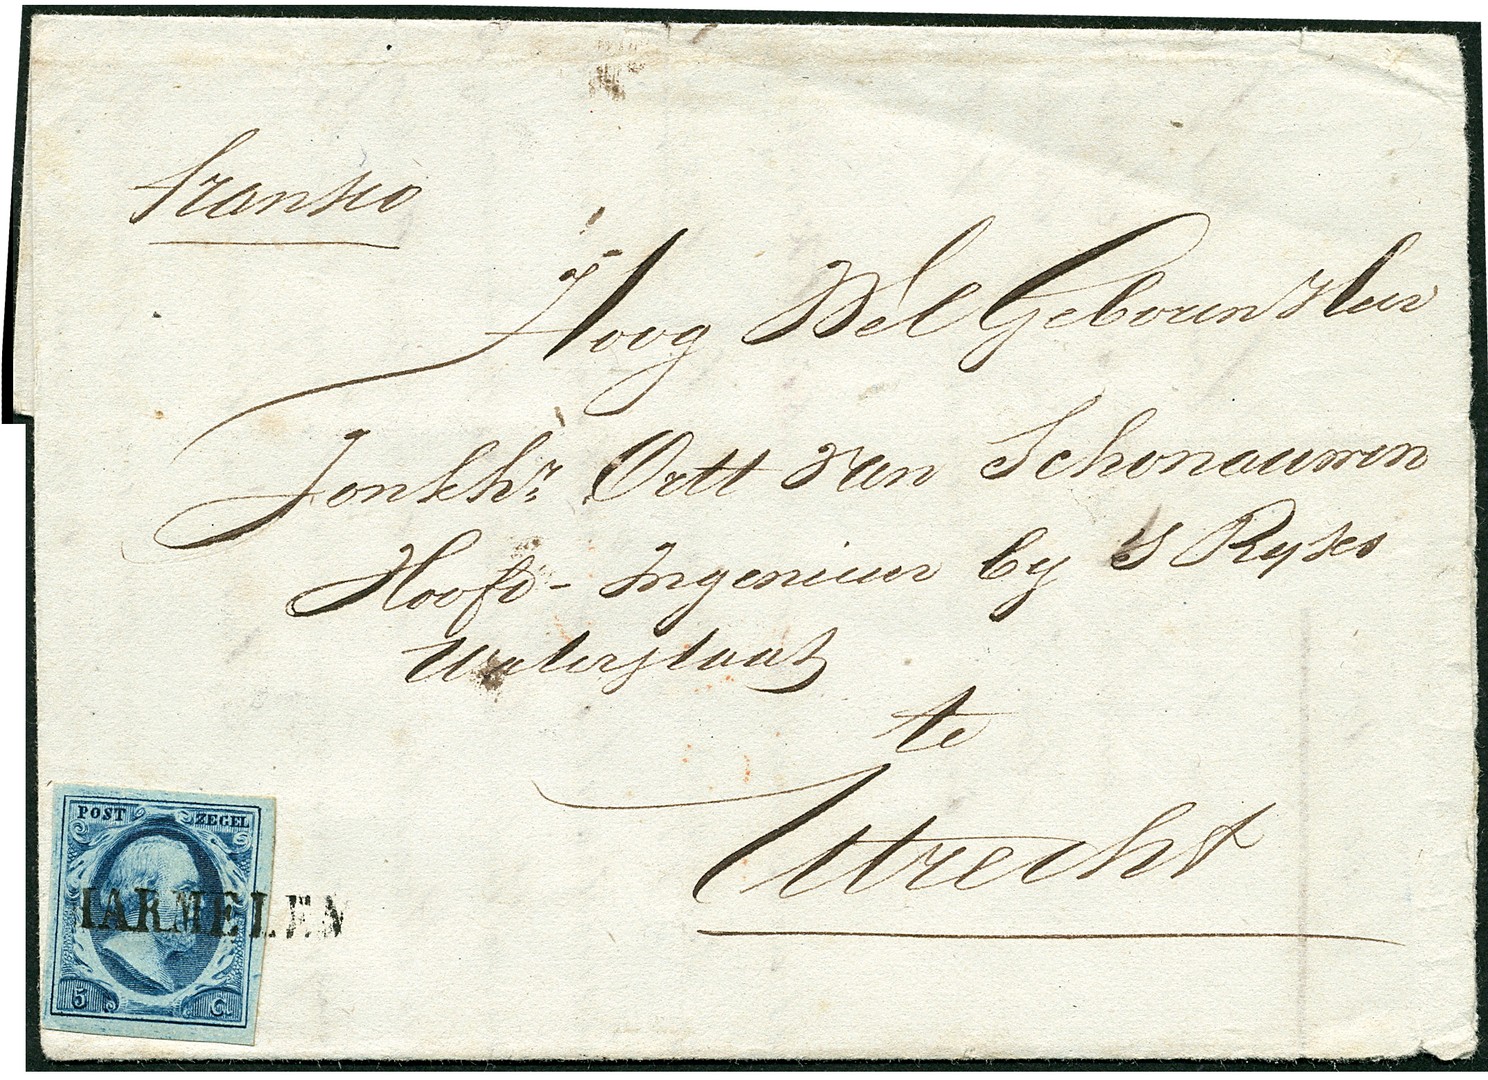 franko
Hoog Wel Geboren Heer
Jonkhr. Ortt van Schonauwen
Hoofd-Ingenieur by 's Ryks
Waterstaat
te
Utrecht
POST ZEGEL
HARMELEN
5 C.